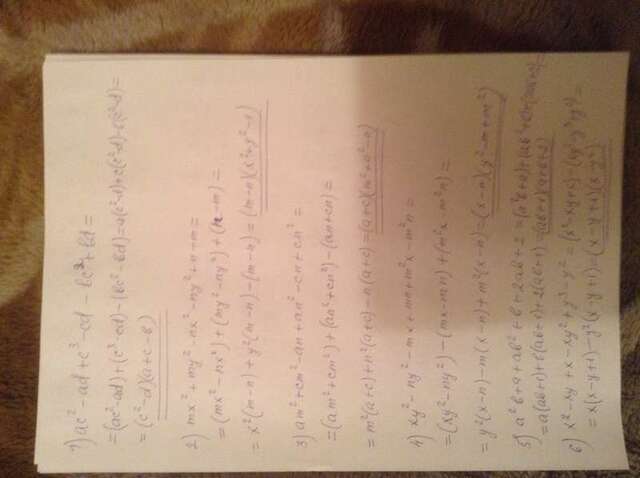 1) ac² - ad + c³ - cd - bc² + bd =
= (ac² - ad) + (c³ - cd) - (bc² - bd) = a(c² - d) + c(c² - d) - b(c² - d) =
= (c² - d)(a + c - b)
2) mx² + my² - nx² - ny² + n - m =
= (mx² - nx²) + (my² - ny²) + (n - m) =
= x²(m - n) + y²(m - n) - (m - n) = (m - n)(x² + y² - 1)
3) am² + cm² - an + an² - cn + cn² =
= (am² + cm²) + (an² + cn²) - (an + cn) =
= m²(a + c) + n²(a + c) - n(a + c) = (a + c)(m² + n² - n)
4) xy² - ny² - mx + mn + m²x - m²n =
= (xy² - ny²) - (mx - mn) + (m²x - m²n) =
= y²(x - n) - m(x - n) + m²(x - n) = (x - n)(y² - m + m²)
5) a²b + a + ab² + b + 2ab + 2 = (a²b + a) + (ab² + b) + (2ab + 2) =
= a(ab + 1) + b(ab + 1) + 2(ab + 1) = (ab + 1)(a + b + 2)
6) x² - xy + x - xy² + y³ - y² = (x² - xy + x) - (xy² - y³ + y²) =
= x(x - y + 1) - y²(x - y + 1) = (x - y + 1)(x - y²)